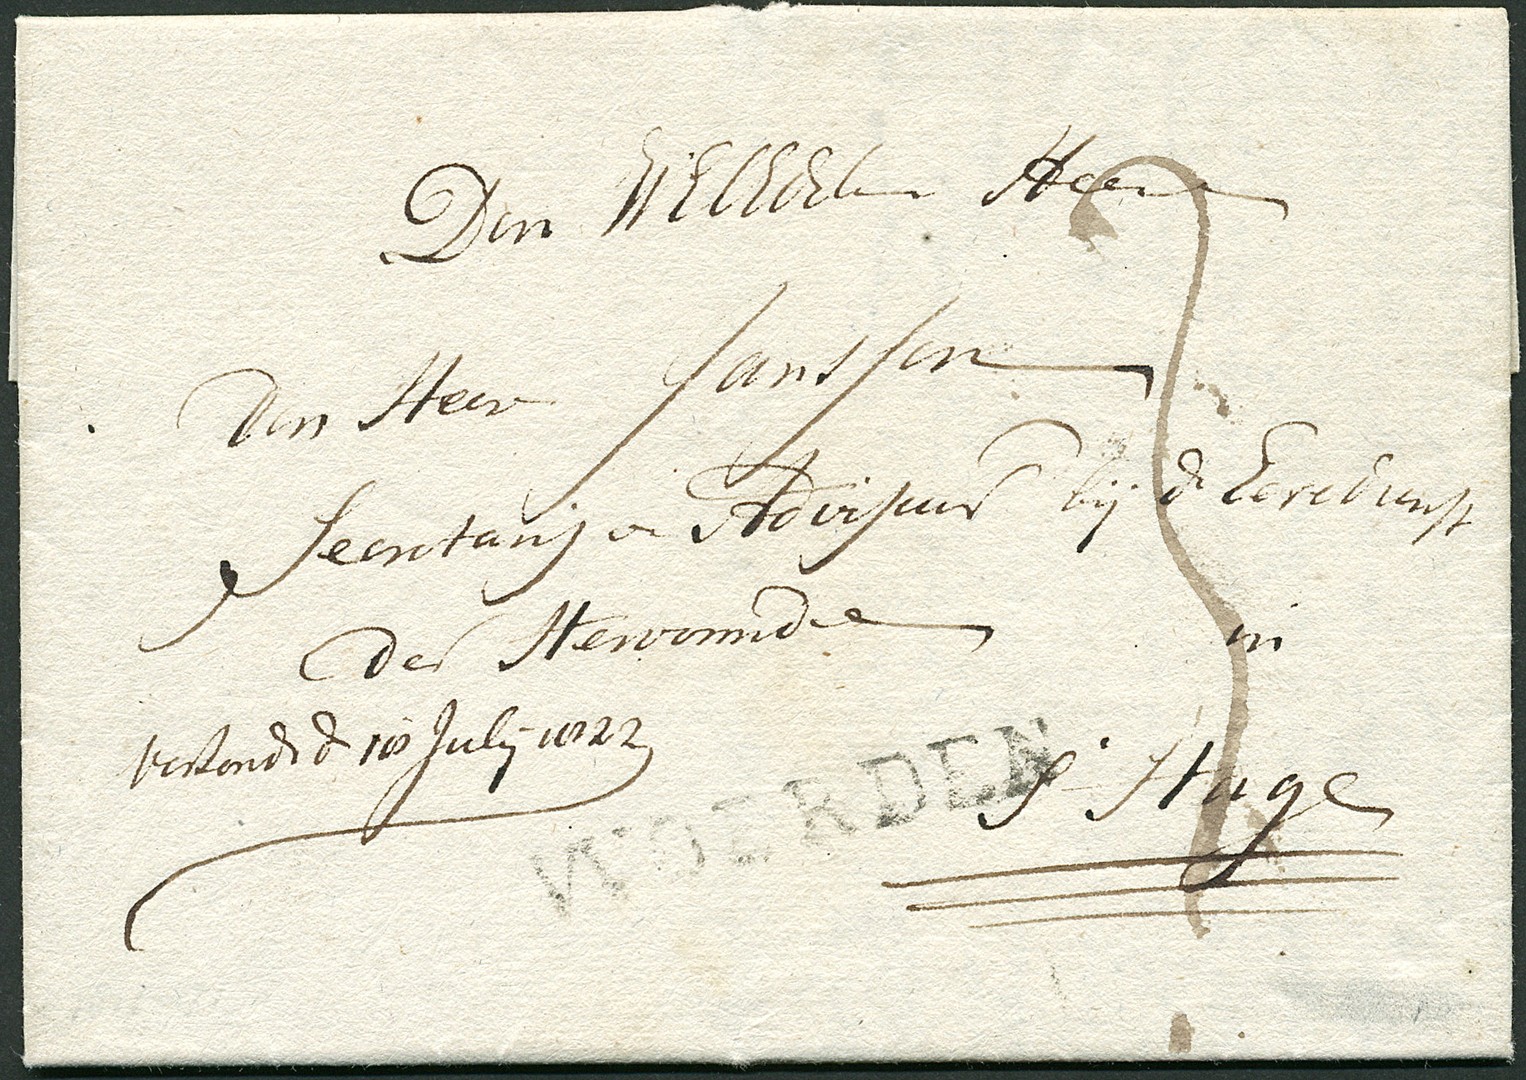 Den WelEdelen Heer
Den Heer Janssen
Secretarij en Adviseur bij de Eeredienst
der Hervormde in
verzonden d 18 July 1822
s' Hage
WOERDEN